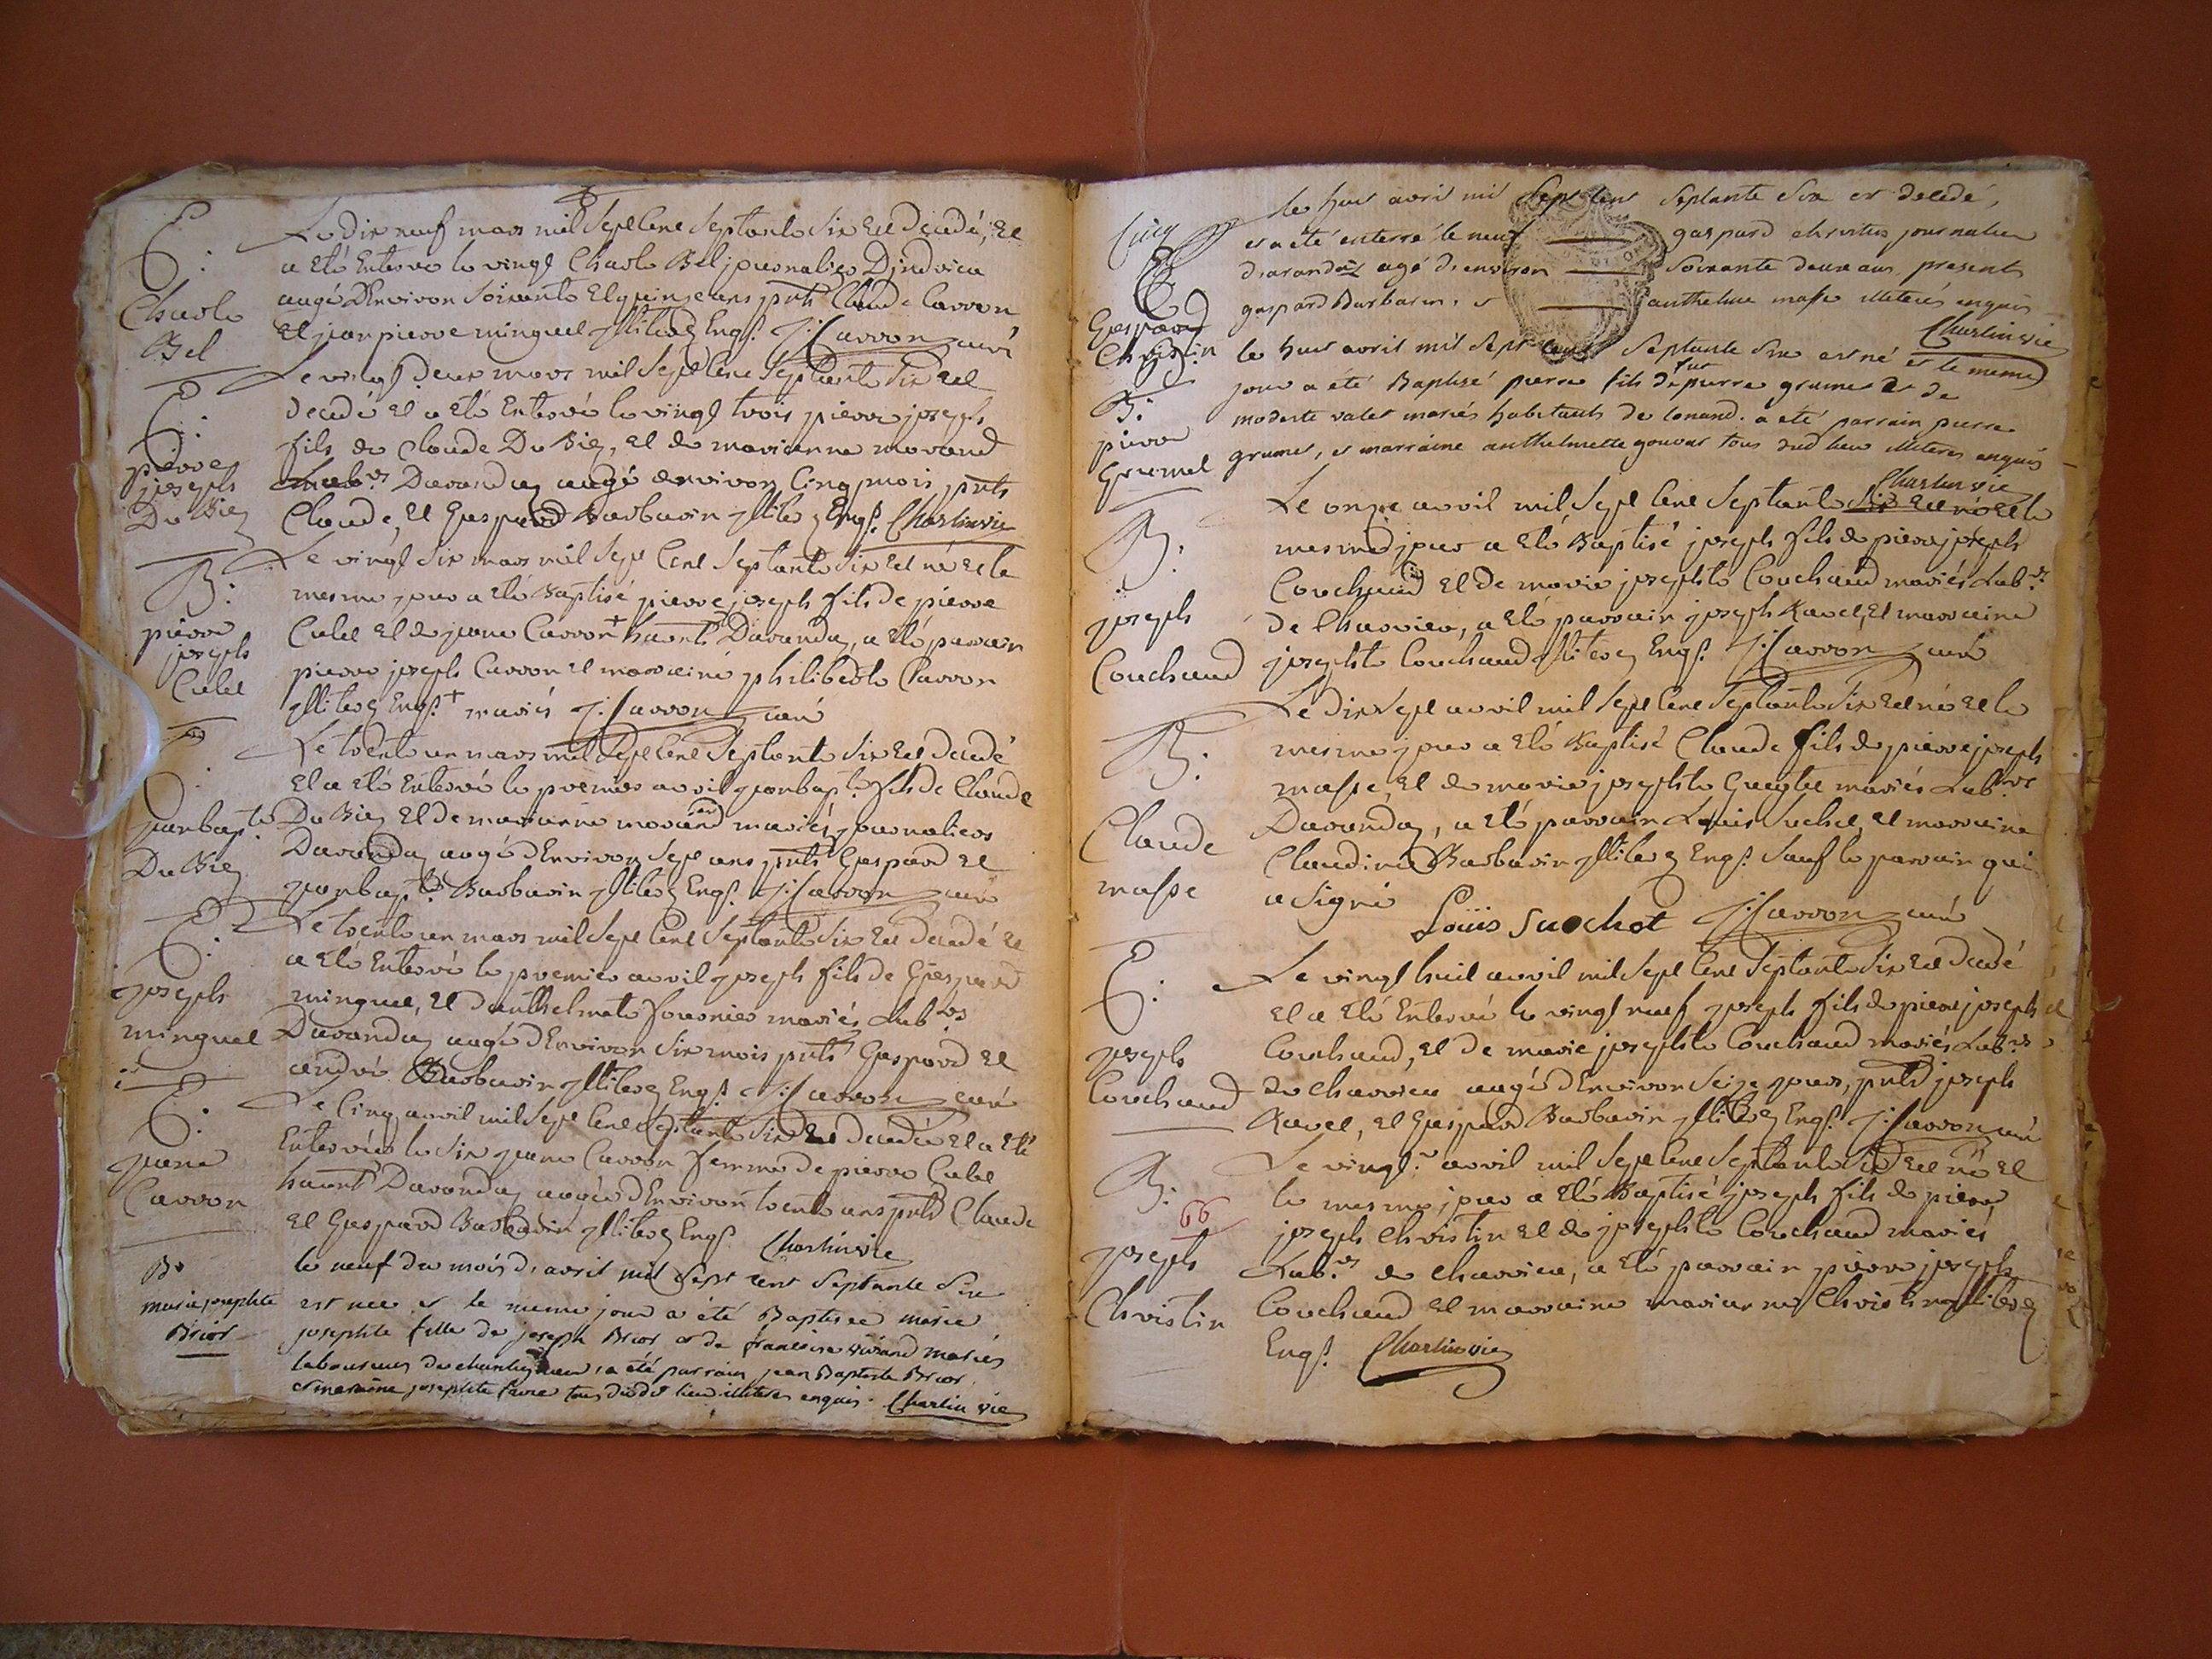 E.
Charle
Bel
Le dix neuf mars mil Sept Cent Septante Six Est Decedé, Et
a Eté Enterré le vingt Charle Bel journalier D'indrieu
aagé D'Environ Soixante Et quinze ans pnts Claude Carron
Et jean pierre minguet Illiterez Enqs. J: Carron curé
E.
pierre
joseph
Du Biez
Le vingt Deux mars mil Sept Cent Septante Six Est
decedé Et a Eté Enterré le vingt trois pierre joseph
fils de Claude Du Biez, Et de marianne morand
Lab.rs Darandaz aagé denviron Cinq mois pnts
Claude, Et Gaspard Barbarin Illiterez Enqs. Charlin vic
B.
pierre
joseph
Culet
Le vingt Six mars mil Sept Cent Septante Six Est né et le
mesme jour a Eté Baptisé pierre joseph fils de pierre
Culet Et de jeane Carron + habnts Darandaz, a Eté parrain
pierre joseph Carron Et marraine philiberte Carron
Illiterez Enqs. + mariés J: Carron curé
E.
jeanbapt.te
Du Biez
Le trente un mars mil Sept Cent Septante Six Est Decedé
Et a Eté Enterré le premier avril jeanbapt.te fils de Claude
Du Biez Et de marianne morand mariés journaliers
Darandaz aagé dEnviron Sept ans pnts Gaspard Et
jeanbapt.te Barbarin Illiterez Enqs. J: Carron curé
E.
joseph
minguet
Le trente un mars mil Sept Cent Septante Six Est Decedé Et
a Eté Enterré le premier avril joseph fils de Gaspard
minguet, Et d'anthelmete fournier mariés Lab.rs
Darandaz aagé dEnviron Six mois pnts Gaspard Et
andré Barbarin Illiterez Enqs. J: Carron curé
E.
jeane
Carron
Le Cinq avril mil Sept Cent Septante Six Est Decedée Et a Eté
Enterrée le Six jeane Carron femme de pierre Culet
habnts Darandaz aagée dEnviron trente ans pnts Claude
Et Gaspard Barbarin Illiterez Enqs. Charlin vic
B.
marie josephte
Brior
le neuf du mois d'avril mil Sept cent Septante Six
est nee et le meme jour a été Baptisee marie
josephte fille de joseph Brior et de francoise vivand mariés
laboureurs de, a été parrain jean Baptiste Brior
et marraine josephte favre tous dudit lieu illiteres enquis. Charlin vic
Cinq
E
Gaspard
Christin
le huit avril mil Sept cent Septante Six est decedé,
et a été enterré le neuf gaspard christin journalier
d'arandaz agé d'environ Soixante deux ans presents
gaspard Barbarin, et anthelme masse illiterés enquis
Charlin vic
B.
pierre
Grumel
le huit avril mil Sept cent Septante Six est né et le meme
jour a été Baptisé pierre fils de feu pierre grumel et de
modeste valet mariés habitants de conand. a été parrain pierre
grumel, et marraine anthelmette gouvat tous dud lieu illiteres enquis
Charlin vic
B.
joseph
Couchaud
Le onze avril mil Sept Cent Septante Six Est né Et le
mesme jour a Eté Baptisé joseph fils de pierre joseph
Couchaud Et de marie josephte Couchaud mariés Lab.rs
de Charvieu, a Eté parrain joseph Ravet, Et marraine
josephte Couchaud Illiterez Enqs. J: Carron curé
B.
Claude
masse
Le Dix Sept avril mil Sept Cent Septante Six Est né Et le
mesme jour a Eté Baptisé Claude fils de pierre joseph
masse, Et de marie josephte mariés Lab.rs
Darandaz, a Eté parrain Louis Suchet, Et marraine
Claudine Barbarin Illiterez Enqs. Sauf le parrain qui
a Signé
Loüis Suochot J: Carron curé
E.
joseph
Couchaud
Le vingt huit avril mil Sept Cent Septante Six Est Decedé
Et a Eté Enterré le vingt neuf joseph fils de pierre joseph
Couchaud, Et de marie josephte Couchaud mariés Lab.rs
de Charvieu aagé dEnviron Seize jours, pnts joseph
Ravet, Et Gaspard Barbarin Illiterez Enqs. J: Carron curé
B.
66
joseph
Christin
Le vingt avril mil Sept Cent Septante Six Est né Et
le mesme jour a Eté Baptisé joseph fils de pierre
joseph Christin Et de josephte Couchaud mariés
Lab.rs de Charvieu, a Eté parrain pierre joseph
Couchaud Et marraine marianne Christin Illiterez
Enqs. Charlin vic